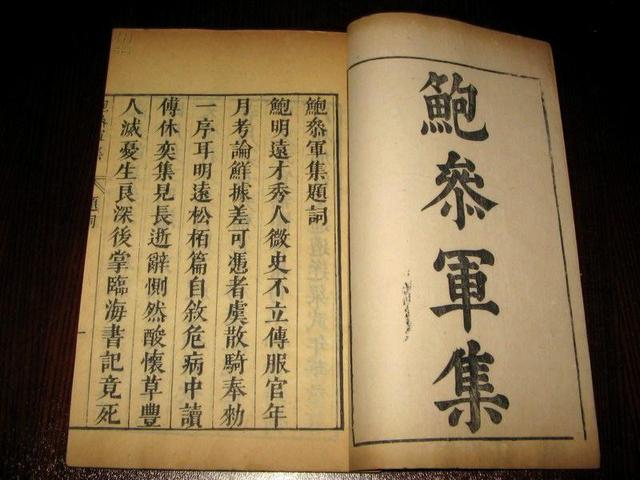 鮑叅軍集
鮑叅軍集題詞
鮑明遠才秀人微史不立傳服官年
月考論鮮據差可憑者虞散騎奉勑
一序耳明遠松栢篇自敘危病中讀
傅休奕集見長逝辭惻然酸懷草豐
人滅憂生良深後掌臨海書記竟死
題詞
一